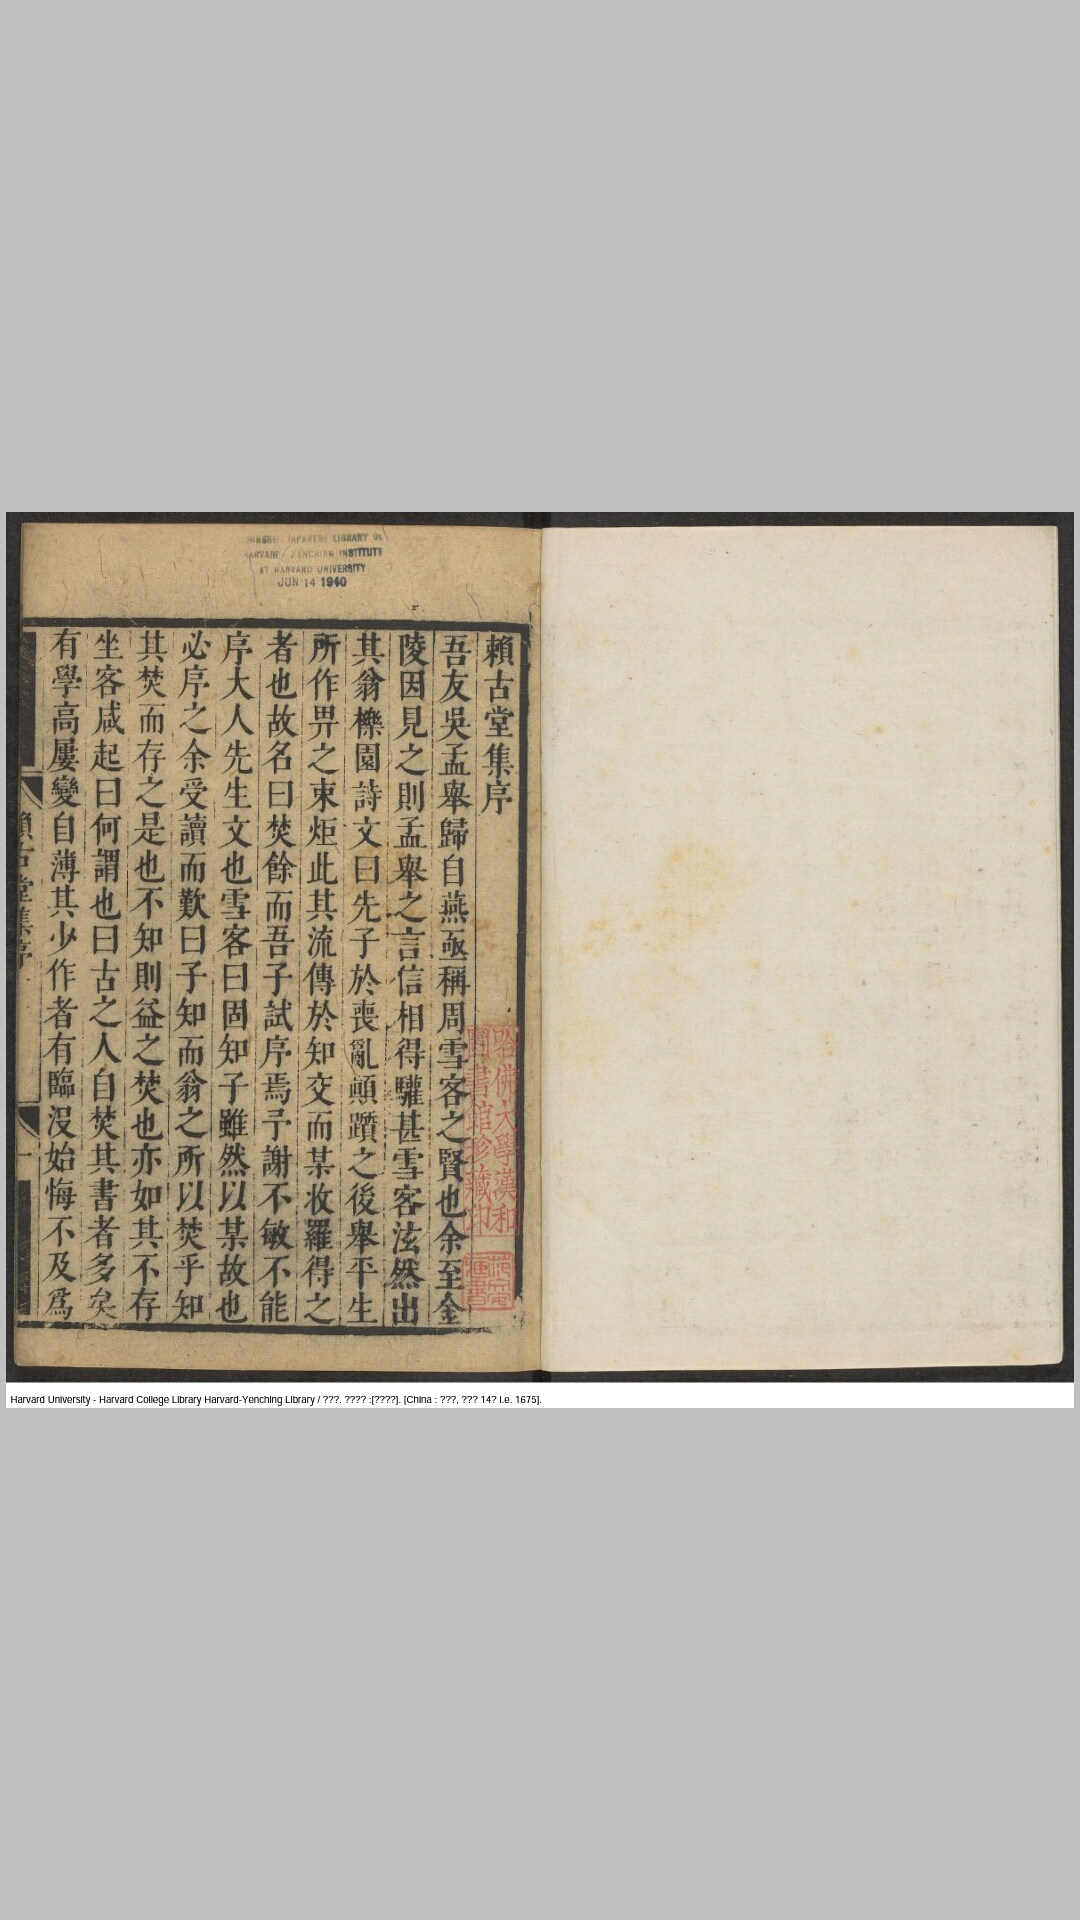 賴古堂集序
吾友吳孟舉歸自燕亟稱周雪客之賢也余至金
陵因見之則孟舉之言信相得驩甚雪客泫然出
其翁櫟園詩文曰先子於喪亂顛躓之後舉平生
所作畀之束炬此其流傳於知交而某收羅得之
者也故名曰焚餘而吾子試序焉予謝不敏不能
序大人先生文也雪客曰固知子雖然以某故也
必序之余受讀而歎曰子知而翁之所以焚乎知
其焚而存之是也不知則益之焚也亦如其不存
坐客咸起曰何謂也曰古之人自焚其書者多矣
有學高屢變自薄其少作者有臨沒始悔不及爲
賴古堂集序
一
哈佛大學漢和
圖書館珍藏印
JAPANESE LIBRARY
HARVARD YENCHING INSTITUTE
AT HARVARD UNIVERSITY
JUN 14 1940
Harvard University - Harvard College Library Harvard-Yenching Library / ???. ???? :[????]. [China : ???, ??? 14? i.e. 1675].